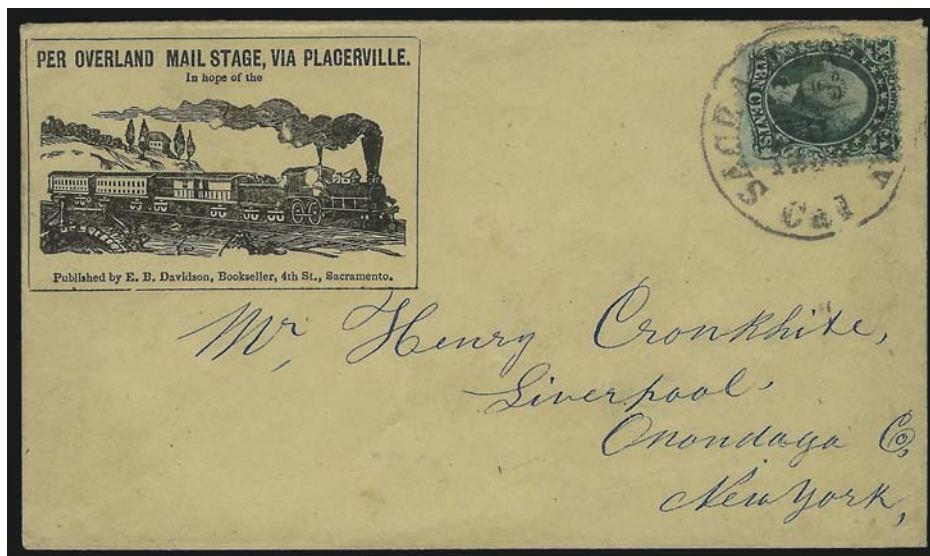 PER OVERLAND MAIL STAGE, VIA PLACERVILLE.
In hope of the
Published by E. B. Davidson, Bookseller, 4th St., Sacramento.
TEN CENTS
Cal
Mr. Henry Cronkhite,
Liverpool,
Onondaga Co,
New York,